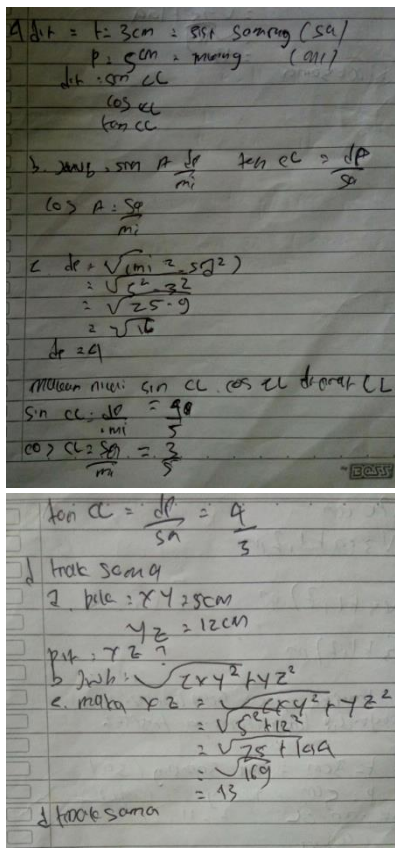 a dit = t = 3cm = sisi samping (sa)
p = 5cm = miring (mi)
dit : sin α
cos α
tan α
b. Jwb. sin A de/mi tan α = de/sa
cos A = sa/mi
c de = √(mi² - sa²)
= √5² - 3²
= √25 - 9
= √16
de = 4
makan nilai sin α cos α α
sin α = de/mi = 4/5
cos α = sa/mi = 3/5
tan α = de/sa = 4/3
d tidak sama
2. XY = 5cm
YZ = 12cm
Dit : XZ ?
b Jwb : √XY² + YZ²
c. maka XZ = √XY² + YZ²
= √5² + 12²
= √25 + 144
= √169
= 13
d tidak sama